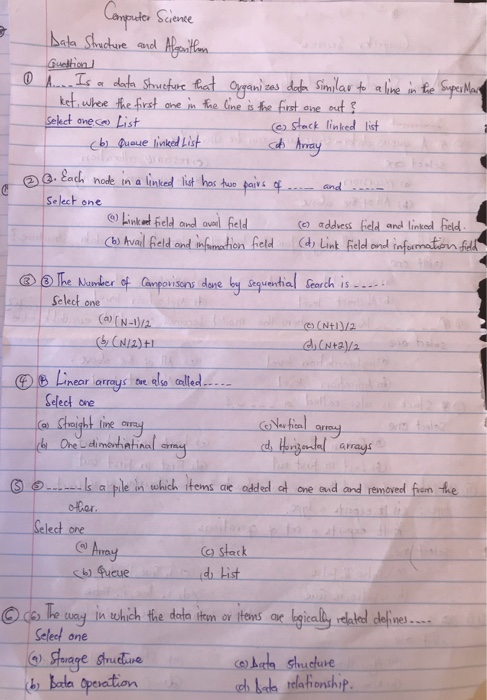 Computer Science
Data Structure and Algorithm
Question 1
① A..... Is a data structure that Organises data Similar to a line in the SuperMar
ket, where the first one in the line is the first one out?
Select one (a) List (c) Stack linked list
(b) Queue linked List (d) Array
② ③. Each node in a linked list has two pairs of ...... and ......
Select one
(a) Linked field and avail field (c) address field and linked field.
(b) Avail field and infamation field (d) Link field and information field
③ ③ The Number of Comparisons done by sequential Search is .....
Select one
(a) (N-1)/2 (c) (N+1)/2
(b) (N/2)+1 (d) (N+2)/2
④ Linear arrays are also called......
Select one
(a) Straight line array (c) Vertical array
(b) One-dimentiatinal array (d) Horizontal arrays
⑤ ⑤ ....... Is a pile in which items are added at one end and removed from the
other.
Select one
(a) Array (c) Stack
(b) Queue (d) List
⑥ (6) The way in which the data item or items are logically related defines.....
Select one
(a) Storage structure (c) Data structure
(b) Data Operation (d) Data relationship.